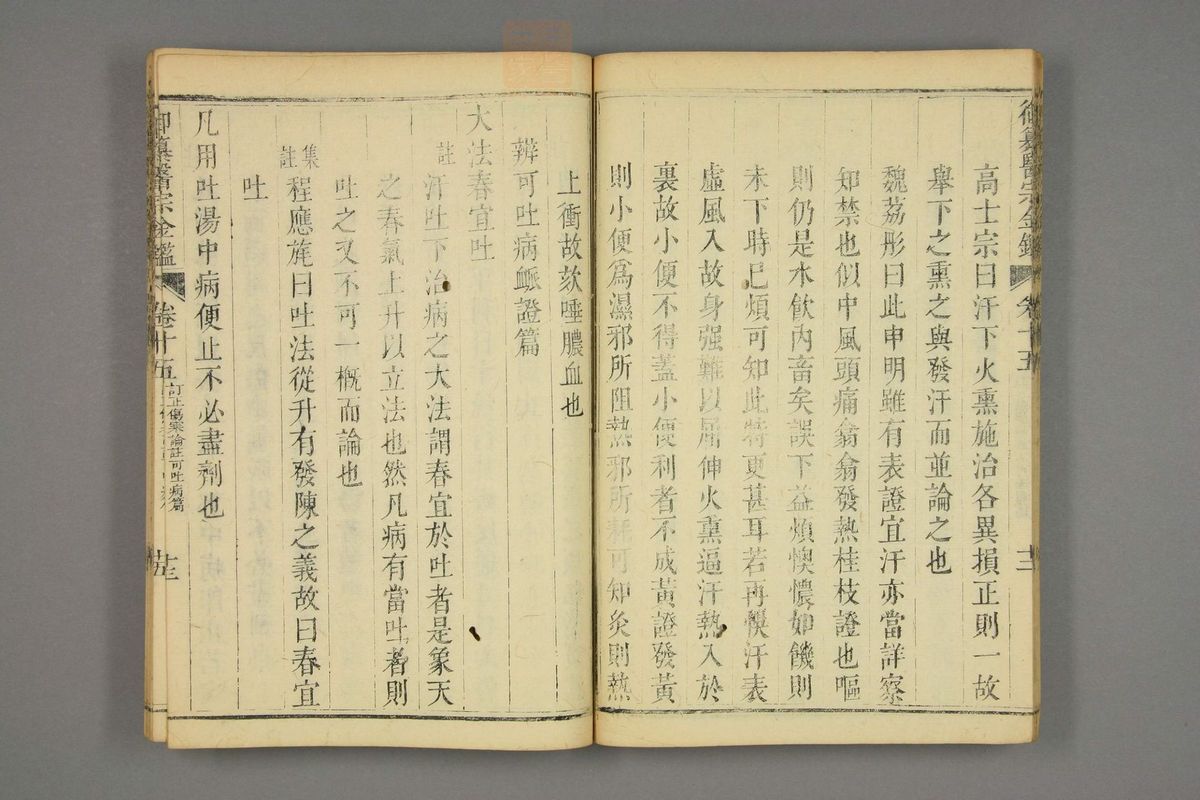 御纂醫宗金鑑 卷十五 十二
高士宗曰汗下火熏施治各異損正則一故
舉下之熏之與發汗而並論之也
魏荔彤曰此申明雖有表證宜汗亦當詳察
知禁也似中風頭痛翕翕發熱桂枝證也嘔
則仍是水飲內畜矣誤下益煩懊憹如饑則
未下時已煩可知此特更甚耳若再悞汗表
虛風入故身强難以屈伸火熏逼汗熱入於
裏故小便不得蓋小便利者不成黃證發黃
則小便爲濕邪所阻熱邪所耗可知灸則熱
上衝故欬唾膿血也
辨可吐病脈證篇
大法春宜吐
註 汗吐下治病之大法謂春宜於吐者是象天
之春氣上升以立法也然凡病有當吐者則
吐之又不可一概而論也
集註 程應旄曰吐法從升有發陳之義故曰春宜
吐
凡用吐湯中病便止不必盡劑也
御纂醫宗金鑑 卷十五 訂正傷寒論註可吐病篇